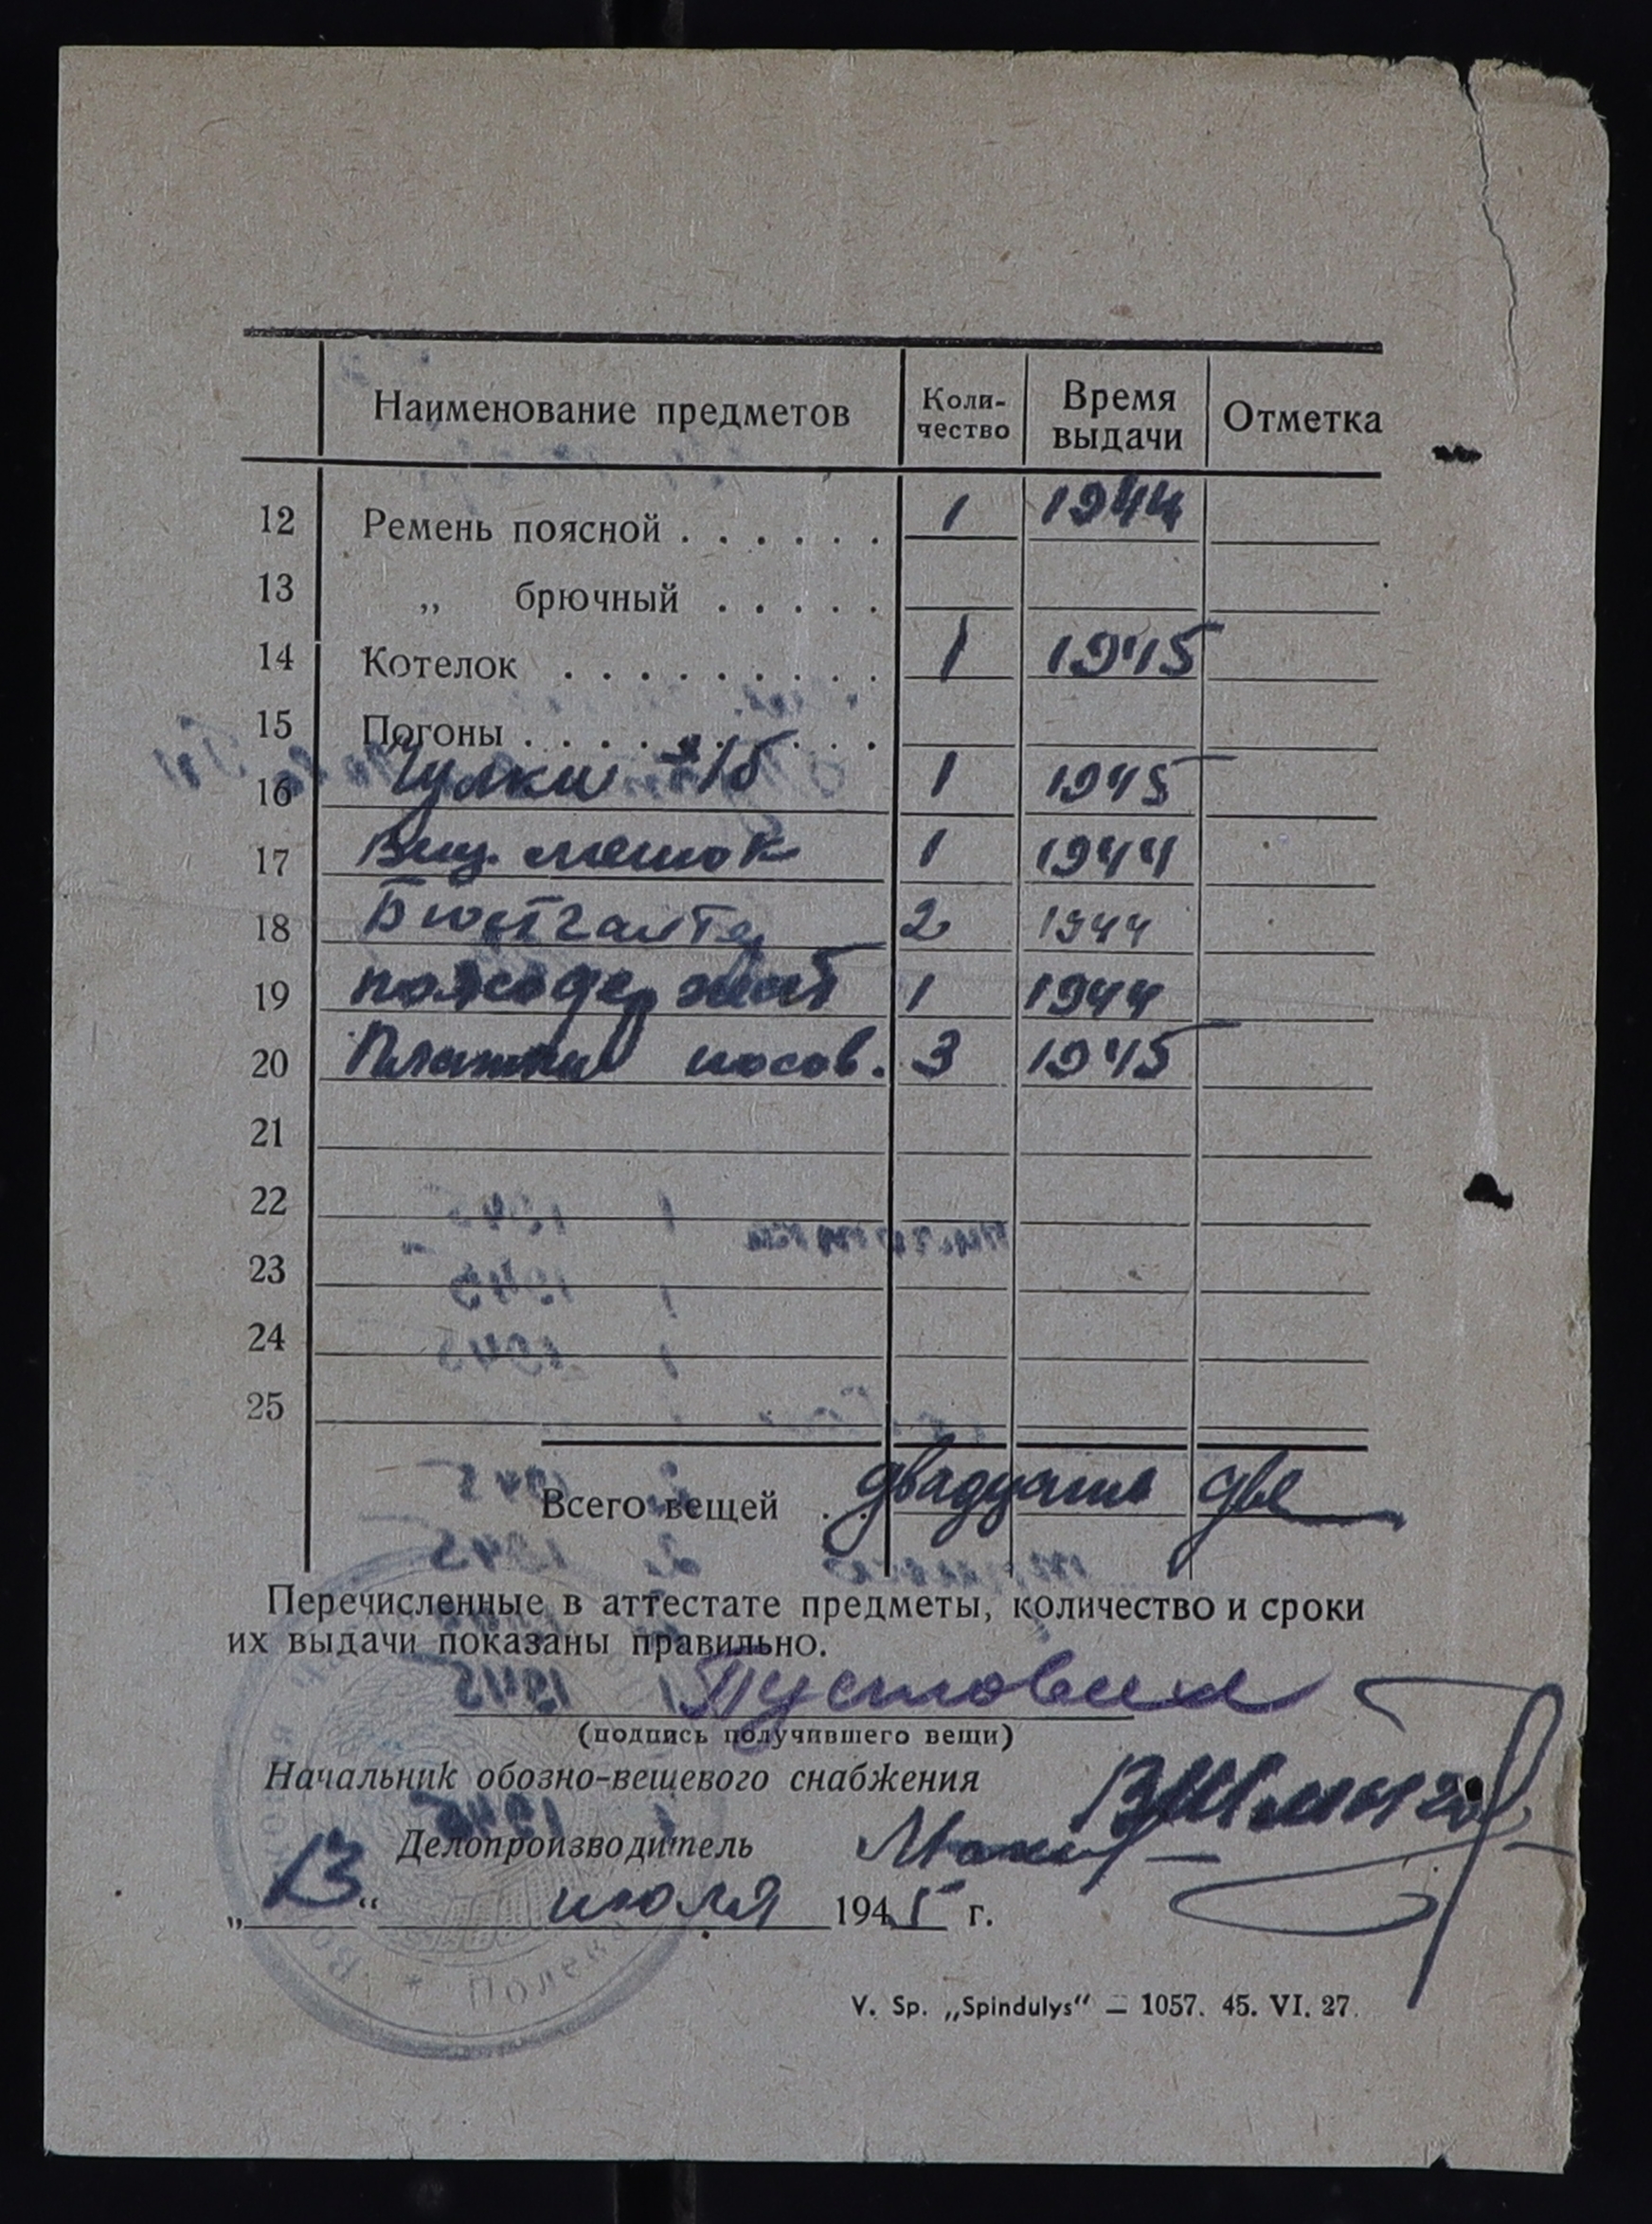 Наименование предметов Коли-чество Время выдачи Отметка
12 Ремень поясной . . . . . . 1 1944
13 „ брючный . . . . .
14 Котелок . . . . . . . . . 1 1945
15 Погоны . . . . . . . . .
16 Чулки х/б 1 1945
17 Вещ. мешок 1 1944
18 Бюстгалтер 2 1944
19 поясодержат 1 1944
20 Платки носов. 3 1945
21
22
23
24
25
Всего вещей . . двадцать две
Перечисленные в аттестате предметы, количество и сроки
их выдачи показаны правильно.
(подпись получившего вещи)
Начальник обозно-вещевого снабжения
Делопроизводитель
„13“ июля 1945 г.
V. Sp. „Spindulys“ — 1057. 45. VI. 27.